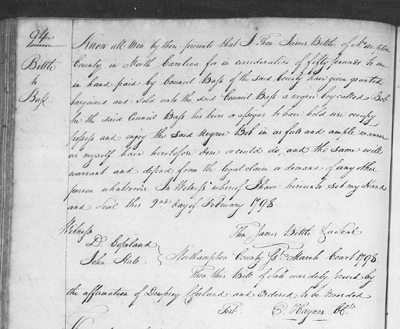 94
Bittle
to
Bass
Know all Men by these presents that I Thos James Bittle of Northton
County, in North Carolina for in consideration of fifty pounds to me
in hand paid by Council Bass of the said County have given granted
bargained and sold unto the said Council Bass a negro boy called Bob
he the said Council Bass his heirs or assigns to have hold use occupy
possess and enjoy the said Negroe Bob in as full and ample manner
as myself have heretofore done or could do, and the same will
warrant and defend from the legal claim or demand of any other
person whatsoever In Witness whereof I have hereunto set my Hand
and seal this 2nd day of February 1798
Witness
Thos James Bittle Seal
D Copeland
John Nale
Northampton County Ss March Court 1798
Then this Bill of sale was duly proved by
the affirmation of Dempsey Copeland and ordered to be recorded
Test E. Haynes Cc